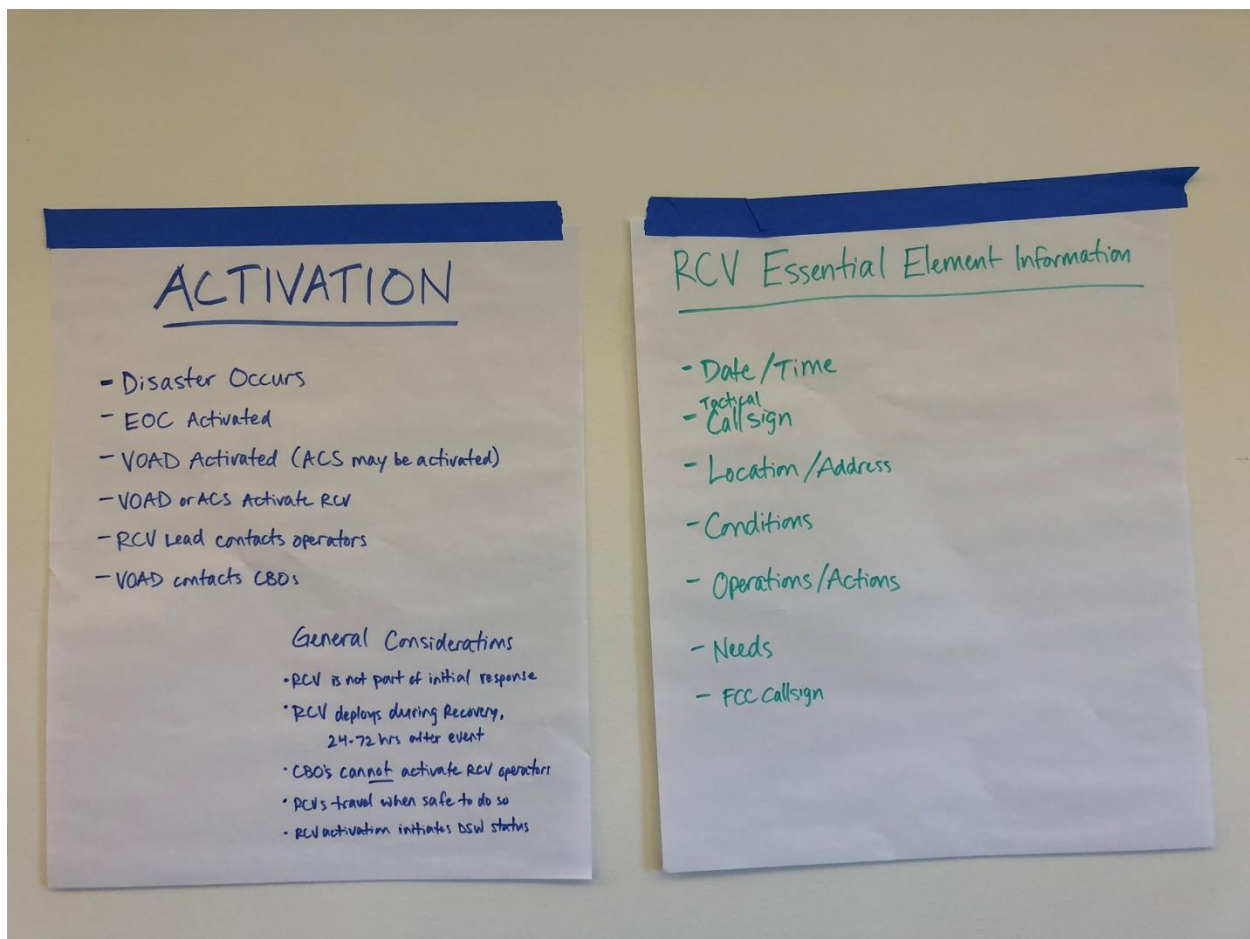 ACTIVATION
- Disaster Occurs
- EOC Activated
- VOAD Activated (ACS may be activated)
- VOAD or ACS Activate RCV
- RCV Lead contacts operators
- VOAD contacts CBOs
General Considerations
• RCV is not part of initial response
• RCV deploys during Recovery,
24-72 hrs after event
• CBO's cannot activate RCV operators
• RCVs travel when safe to do so
• RCV activation initiates DSW status
RCV Essential Element Information
- Date/Time
Tactical
- Callsign
- Location/Address
- Conditions
- Operations/Actions
- Needs
- FCC Callsign